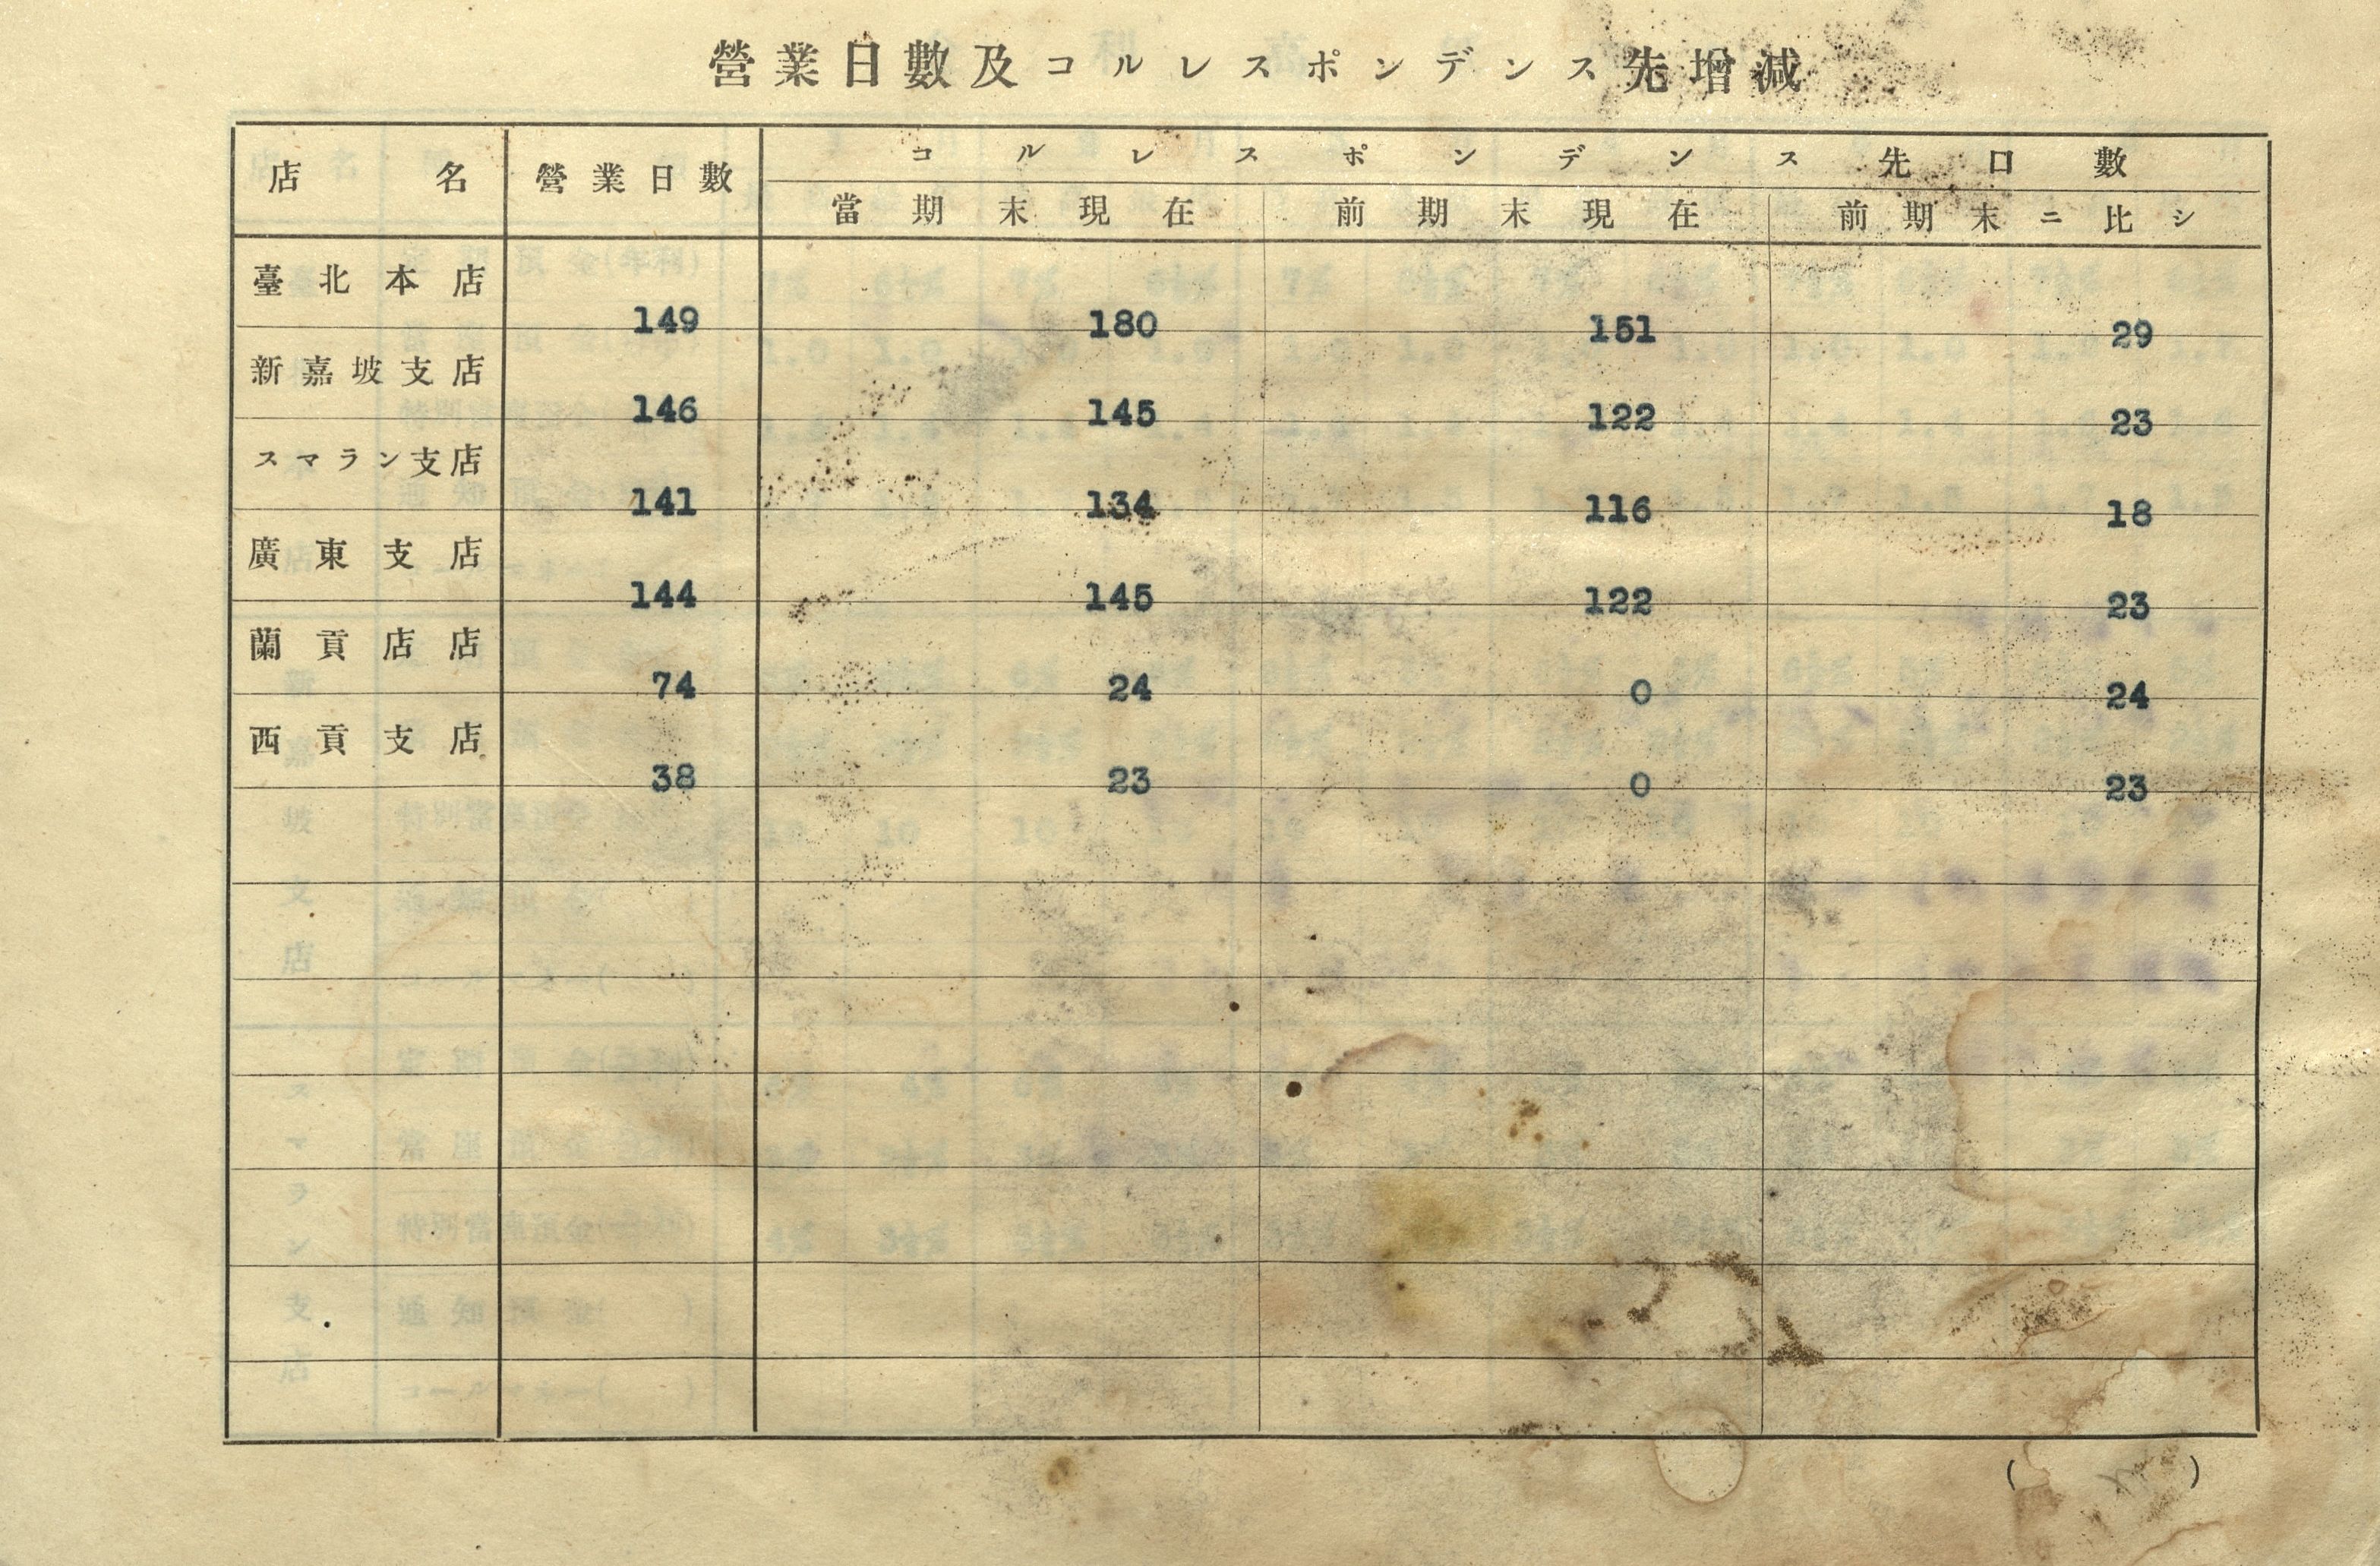 營業日數及コルレスポンデンス先增減
店名 營業日數 コルレスポンデンス先口數
當期末現在 前期末現在 前期末ニ比シ
臺北本店 149 180 151 29
新嘉坡支店 146 145 122 23
スマラン支店 141 134 116 18
廣東支店 144 145 122 23
蘭貢店店 74 24 0 24
西貢支店 38 23 0 23
( )